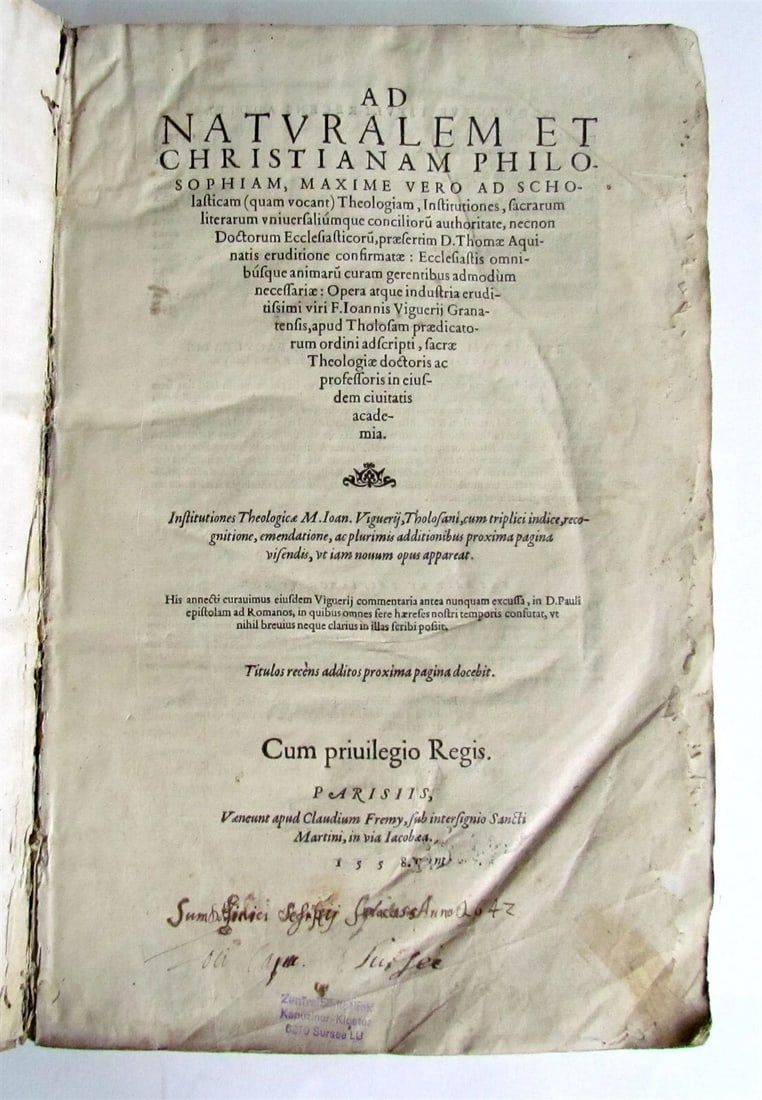 AD
NATVRALEM ET
CHRISTIANAM PHILO-
SOPHIAM, MAXIME VERO AD SCHO-
laſticam (quam vocant) Theologiam, Inſtitutiones, ſacrarum
literarum vniuerſaliúmque conciliorū authoritate, necnon
Doctorum Eccleſiaſticorū, præſertim D. Thomæ Aqui-
natis eruditione confirmatæ : Eccleſiaſtis omni-
búſque animarū curam gerentibus admodùm
neceſſariæ : Opera atque induſtria erudi-
tiſſimi viri F. Ioannis Viguerij Grana-
tenſis, apud Tholoſam prædicato-
rum ordini adſcripti, ſacræ
Theologiæ doctoris ac
profeſſoris in eiuſ-
dem ciuitatis
acade-
mia.
Inſtitutiones Theologicæ M. Ioan. Viguerij, Tholoſani, cum triplici indice, reco-
gnitione, emendatione, ac plurimis additionibus proxima pagina
viſendis, vt iam nouum opus appareat.
His annecti curauimus eiuſdem Viguerij commentaria antea nunquam excuſſa, in D. Pauli
epiſtolam ad Romanos, in quibus omnes fere hæreſes noſtri temporis confutat, vt
nihil breuius neque clarius in illas ſcribi poſſit.
Titulos recèns additos proxima pagina docebit.
Cum priuilegio Regis.
PARISIIS,
Væneunt apud Claudium Fremy, ſub interſignio Sancti
Martini, in via Iacobæa.
1558.
Sum Anno 1642
Surſee
Kapuziner-Kloster
6210 Sursee LU